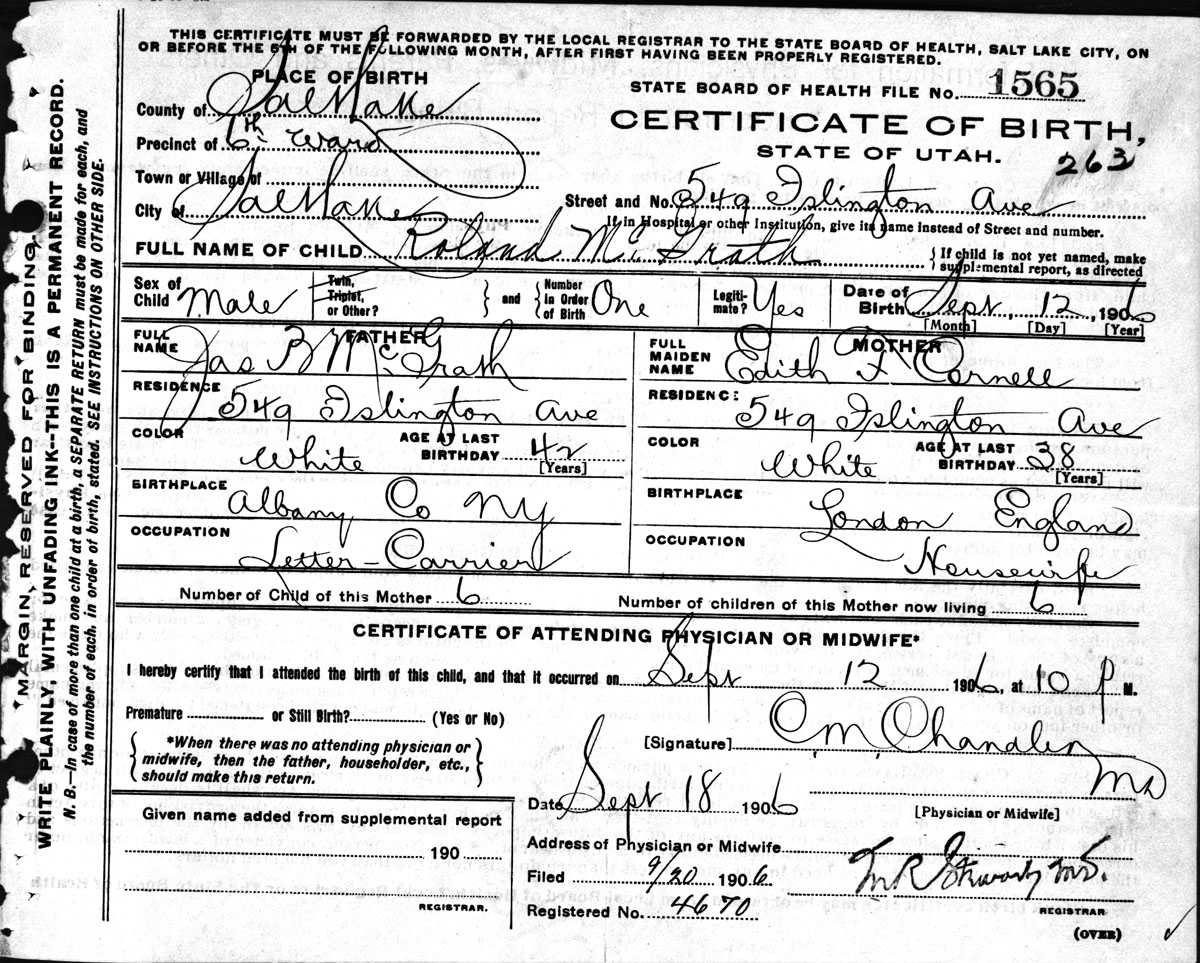 THIS CERTIFICATE MUST BE FORWARDED BY THE LOCAL REGISTRAR TO THE STATE BOARD OF HEALTH, SALT LAKE CITY, ON
OR BEFORE THE 5TH OF THE FOLLOWING MONTH, AFTER FIRST HAVING BEEN PROPERLY REGISTERED.
PLACE OF BIRTH
STATE BOARD OF HEALTH FILE No. 1565
County of Salt Lake
CERTIFICATE OF BIRTH,
Precinct of 6th Ward
STATE OF UTAH.
263
Town or Village of
City of Salt Lake
Street and No. 549 Islington Ave
If in Hospital or other Institution, give its name instead of Street and number.
FULL NAME OF CHILD Roland McGrath
{ If child is not yet named, make
supplemental report, as directed
Sex of Child Male
Twin, Triplet, or Other? } and { Number in Order of Birth One
Legitimate? Yes
Date of Birth Sept 12, 1906
[Month] [Day] [Year]
FATHER
FULL NAME Jas B McGrath
RESIDENCE 549 Islington Ave
COLOR White
AGE AT LAST BIRTHDAY 42
[Years]
BIRTHPLACE Albany Co NY
OCCUPATION Letter-Carrier
MOTHER
FULL MAIDEN NAME Edith F Cornell
RESIDENCE: 549 Islington Ave
COLOR White
AGE AT LAST BIRTHDAY 38
[Years]
BIRTHPLACE London England
OCCUPATION Housewife
Number of Child of this Mother 6
Number of children of this Mother now living 6
CERTIFICATE OF ATTENDING PHYSICIAN OR MIDWIFE*
I hereby certify that I attended the birth of this child, and that it occurred on Sept 12 1906, at 10 P M.
Premature or Still Birth? (Yes or No)
{ *When there was no attending physician or
midwife, then the father, householder, etc.,
should make this return. }
[Signature] C M Chandler
MD
[Physician or Midwife]
Date Sept 18 1906
Given name added from supplemental report
190
REGISTRAR.
Address of Physician or Midwife
Filed 9/20 1906
Registered No. 4670
M.D.
REGISTRAR.
(OVER)
"MARGIN, RESERVED FOR BINDING."
WRITE PLAINLY, WITH UNFADING INK--THIS IS A PERMANENT RECORD.
N. B.—In case of more than one child at a birth, a SEPARATE RETURN must be made for each, and
the number of each, in order of birth, stated. SEE INSTRUCTIONS ON OTHER SIDE.